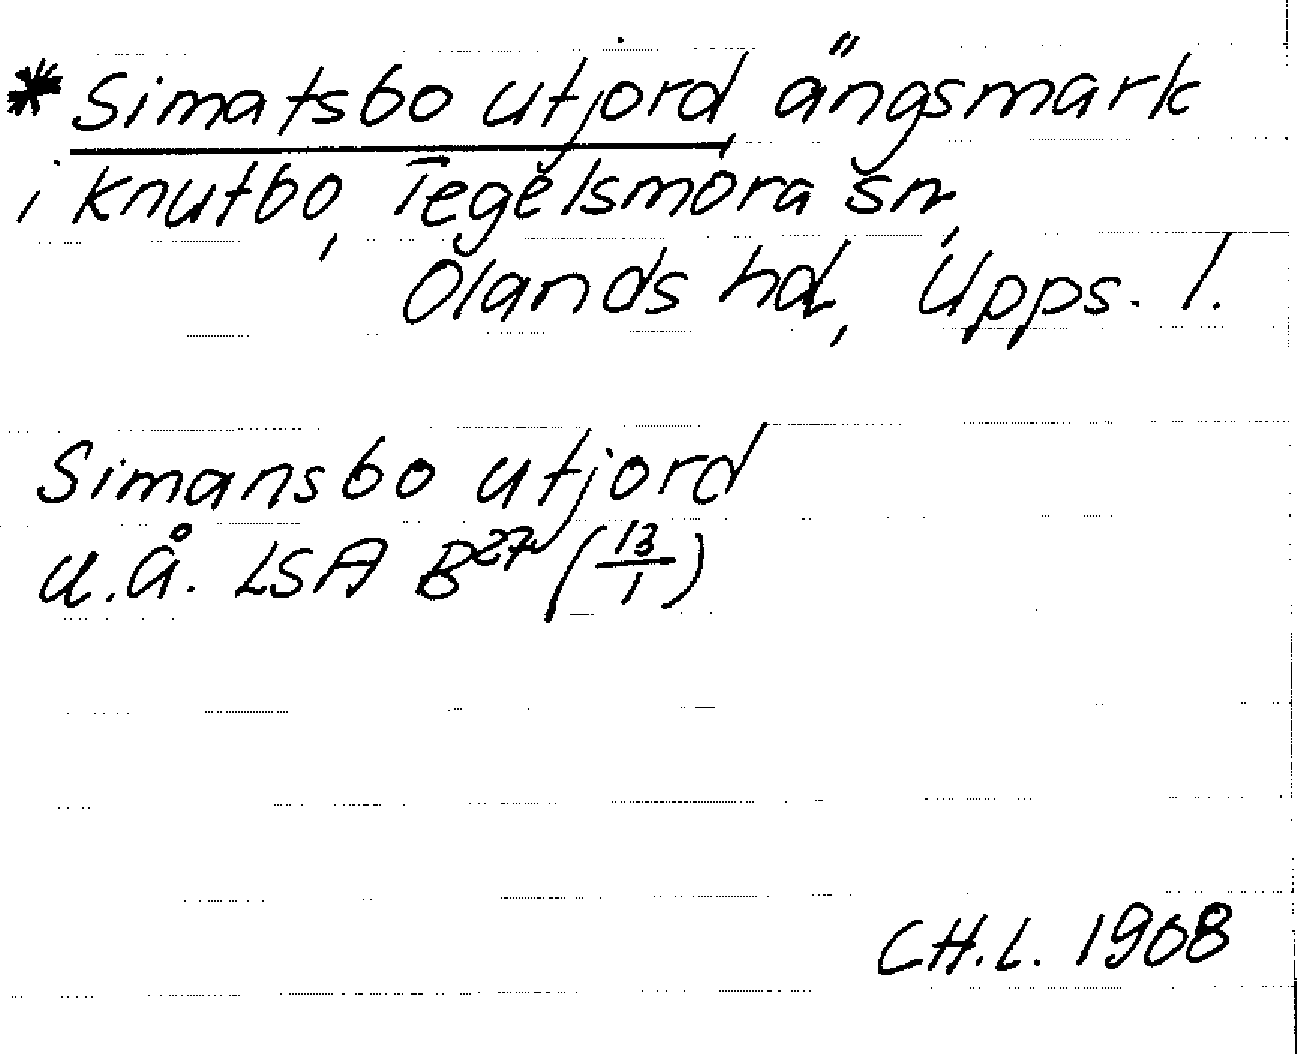 * Simatsbo utjord, ängsmark
i Knutbo, Tegelsmora sn,
Ölands hd, Upps. l.
Simansbo utjord
u.å. LSA B²⁷ (13/1)
C.H.L. 1908